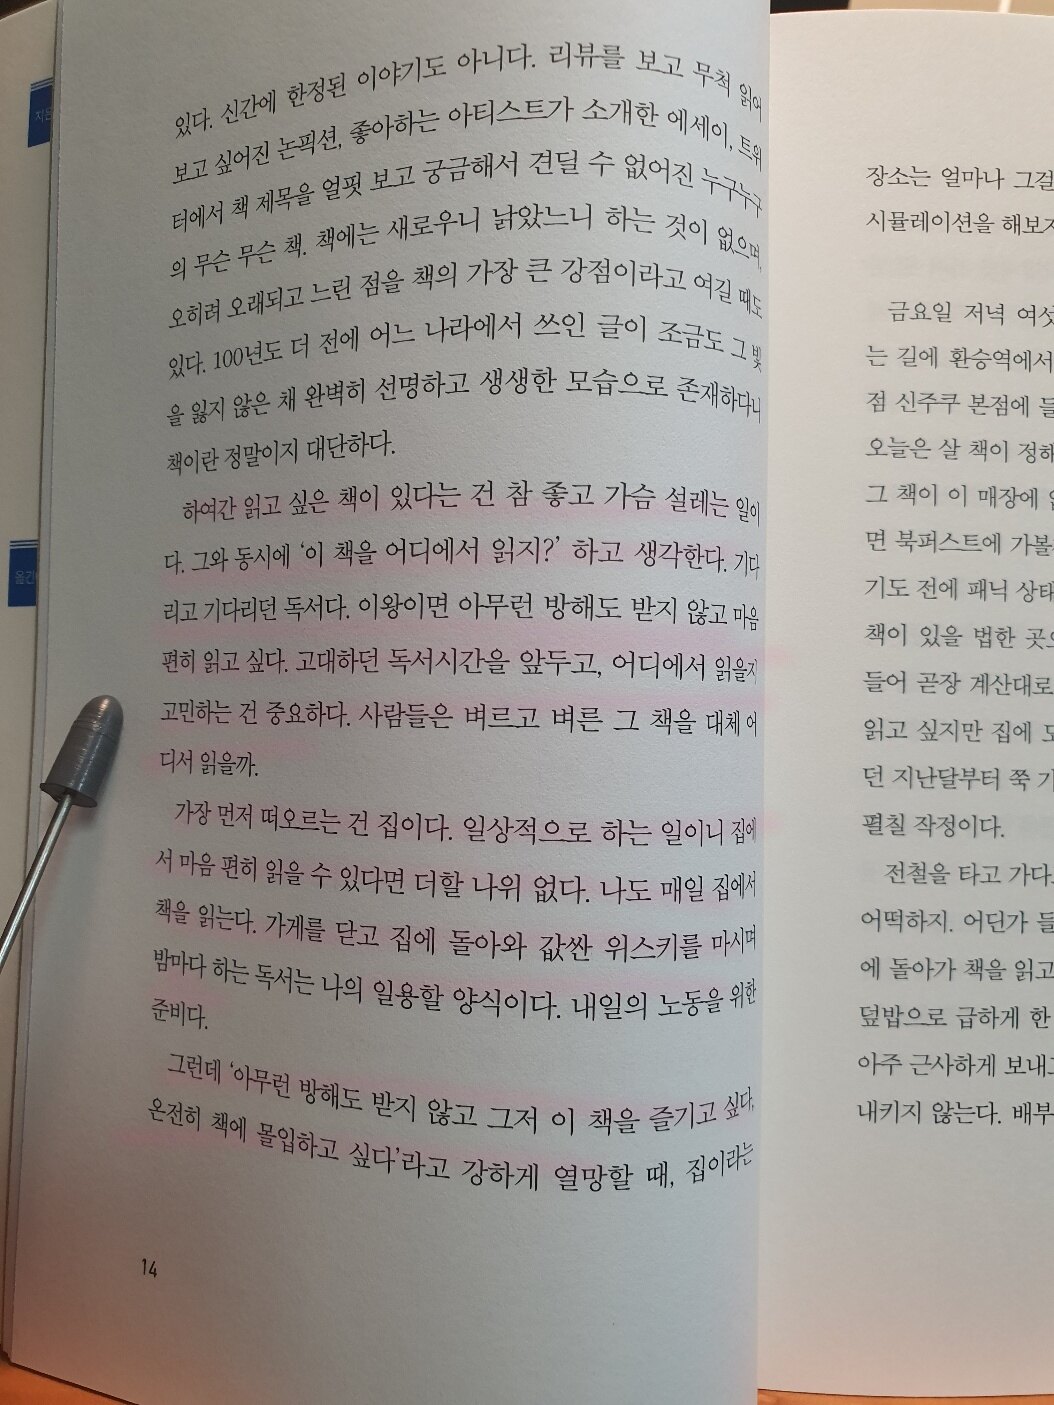 있다. 신간에 한정된 이야기도 아니다. 리뷰를 보고 무척 읽어
보고 싶어진 논픽션, 좋아하는 아티스트가 소개한 에세이, 트위
터에서 책 제목을 얼핏 보고 궁금해서 견딜 수 없어진 누구누구
의 무슨 무슨 책. 책에는 새로우니 낡았느니 하는 것이 없으며,
오히려 오래되고 느린 점을 책의 가장 큰 강점이라고 여길 때도
있다. 100년도 더 전에 어느 나라에서 쓰인 글이 조금도 그 빛
을 잃지 않은 채 완벽히 선명하고 생생한 모습으로 존재하다니
책이란 정말이지 대단하다.
하여간 읽고 싶은 책이 있다는 건 참 좋고 가슴 설레는 일이
다. 그와 동시에 ‘이 책을 어디에서 읽지?’ 하고 생각한다. 기다
리고 기다리던 독서다. 이왕이면 아무런 방해도 받지 않고 마음
편히 읽고 싶다. 고대하던 독서시간을 앞두고, 어디에서 읽을지
고민하는 건 중요하다. 사람들은 벼르고 벼른 그 책을 대체 어
디서 읽을까.
가장 먼저 떠오르는 건 집이다. 일상적으로 하는 일이니 집에
서 마음 편히 읽을 수 있다면 더할 나위 없다. 나도 매일 집에서
책을 읽는다. 가게를 닫고 집에 돌아와 값싼 위스키를 마시며
밤마다 하는 독서는 나의 일용할 양식이다. 내일의 노동을 위한
준비다.
그런데 ‘아무런 방해도 받지 않고 그저 이 책을 즐기고 싶다,
온전히 책에 몰입하고 싶다’라고 강하게 열망할 때, 집이라는
14
장소는 얼마나 그걸
시뮬레이션을 해보
금요일 저녁 여섯
는 길에 환승역에서
점 신주쿠 본점에 들
오늘은 살 책이 정해
그 책이 이 매장에
면 북퍼스트에 가볼
기도 전에 패닉 상태
책이 있을 법한 곳
들어 곧장 계산대로
읽고 싶지만 집에
던 지난달부터 쭉
펼칠 작정이다.
전철을 타고 가다
어떡하지. 어딘가 들
에 돌아가 책을 읽고
덮밥으로 급하게 한
아주 근사하게 보내
내키지 않는다. 배부